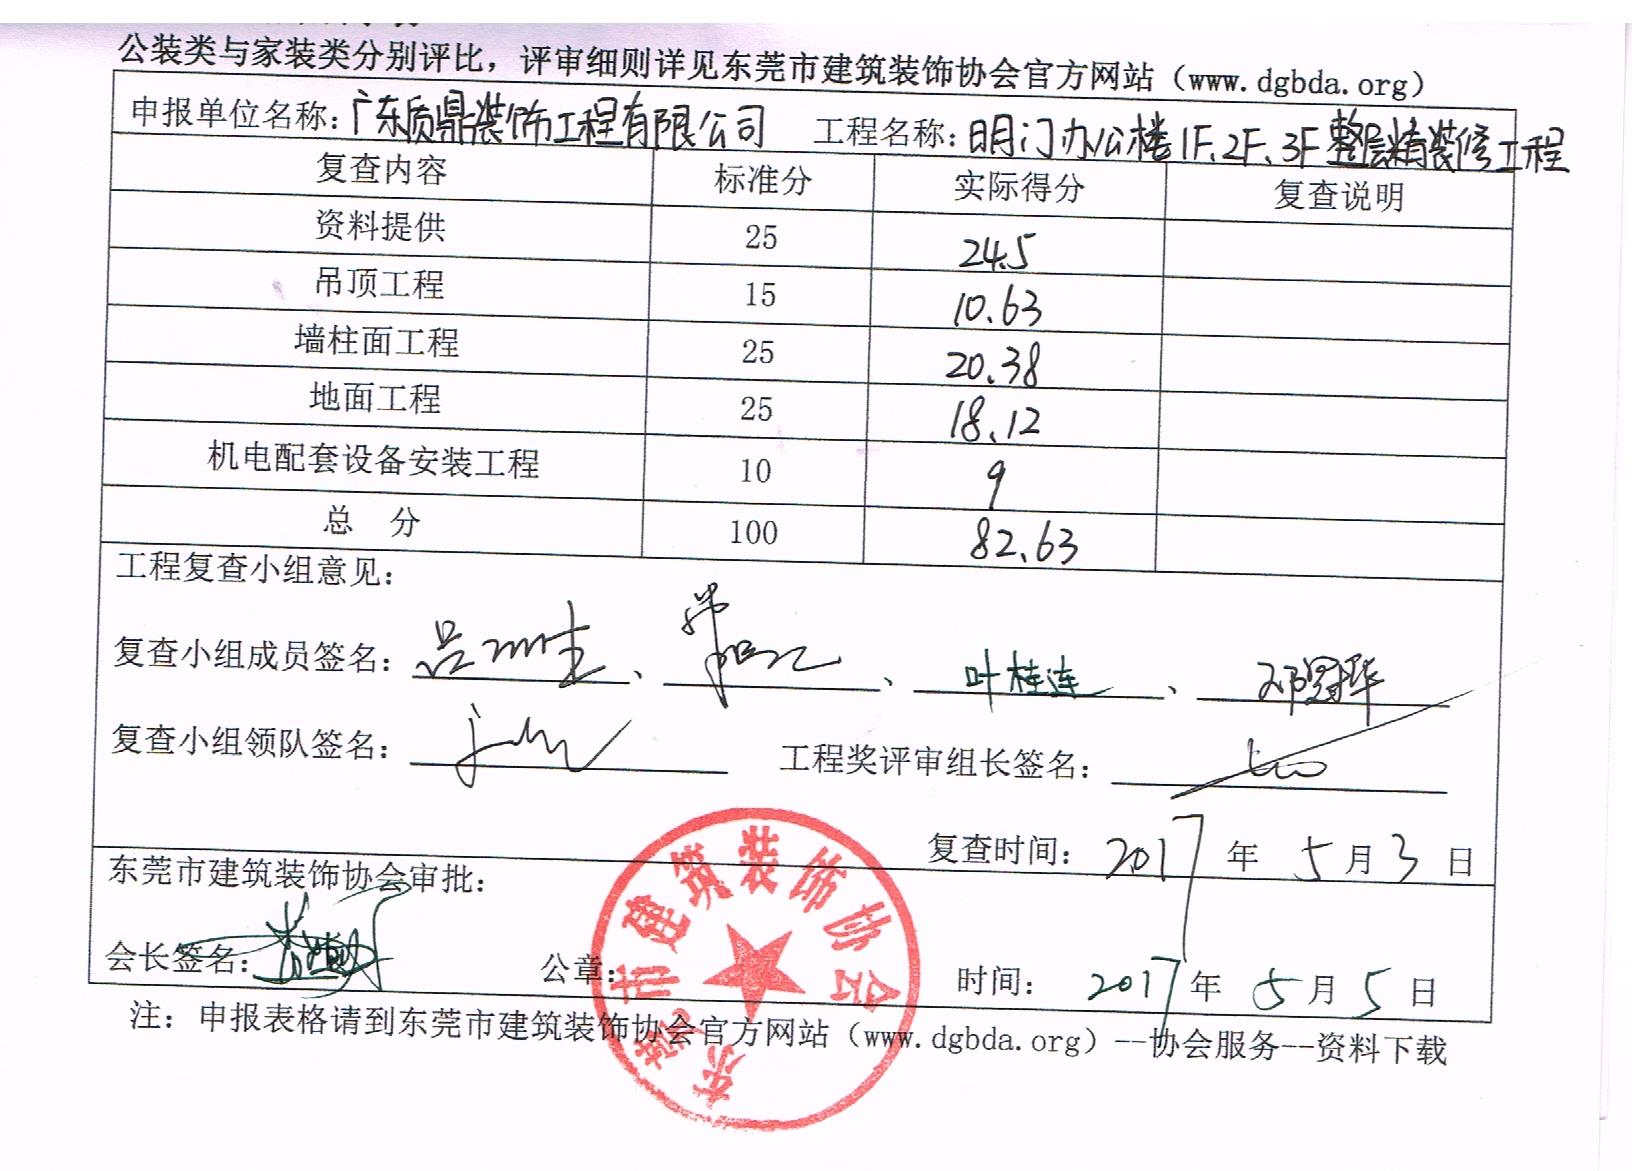 公装类与家装类分别评比，评审细则详见东莞市建筑装饰协会官方网站（www.dgbda.org）
申报单位名称：广东质鼎装饰工程有限公司 工程名称：明门办公楼1F、2F、3F整层精装修工程
复查内容 标准分 实际得分 复查说明
资料提供 25 24.5
吊顶工程 15 10.63
墙柱面工程 25 20.38
地面工程 25 18.12
机电配套设备安装工程 10 9
总 分 100 82.63
工程复查小组意见：
复查小组成员签名： 、 、叶桂连、邓冠华
复查小组领队签名： 工程奖评审组长签名：
复查时间：2017年5月3日
东莞市建筑装饰协会审批：
会长签名： 公章： 时间：2017年5月5日
东莞市建筑装饰协会
注：申报表格请到东莞市建筑装饰协会官方网站（www.dgbda.org）--协会服务--资料下载